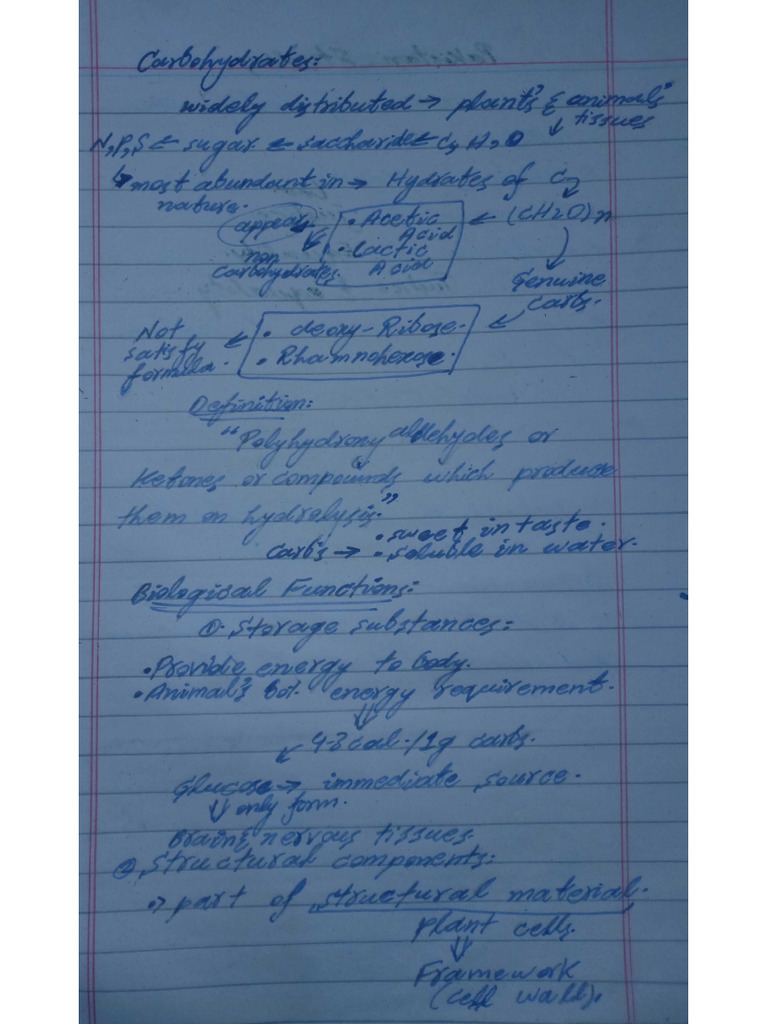 Carbohydrates:
widely distributed → plants & animals
tissues
N,P,S ← sugar ← saccharide ← C, H, O
↳ most abundant in → Hydrates of C
nature.
appear
• Acetic Acid
← (CH2O)n
• Lactic Acid
non carbohydrates.
Genuine carbs.
Not satisfy formula.
← • deoxy-Ribose. ←
• Rhamnohexose.
Definition:
"Polyhydroxy aldehydes or
Ketones or compounds which produce
them on hydrolysis."
• sweet in taste.
Carbs → • soluble in water.
Biological Functions:
①. Storage substances:
• Providie energy to body.
• Animal's 60%. energy requirement.
⇓
↙ 4-3cal./1g carbs.
Glucose → immediate source.
⇓ only form.
Brain & nervous tissues.
② Structural components:
→ part of structural material.
plant cells.
⇓
Framework
(cell wall).